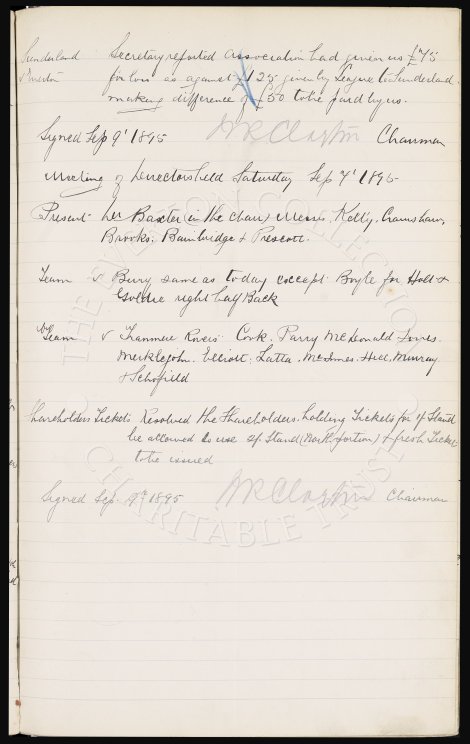 Sunderland Secretary reported association had given us £75
v Everton for loss as against £125 given by League to Sunderland
making difference of £50 to be paid by us.
Signed Sep 9th 1895 W R Clayton Chairman
Meeting of Directors held Saturday Sep 7th 1895
Present Mr Baxter (in the chair) Messrs. Kelly, Cramshaw,
Brooks, Bainbridge & Prescott.
Team v Bury same as to day except Boyle for Holt &
Goldie right half Back
Team v Tranmere Rovers Cork. Parry McDonald
Meiklejohn. Elliott. Latta. McInnes. Hill, Murray
& Schofield
Shareholders Tickets Resolved the Shareholders holding Tickets for Stand
be allowed to use Stand & fresh Ticket
to be issued
Signed Sep. 9th 1895 W R Clayton Chairman
THE EVERTON COLLECTION
CHARITABLE TRUST